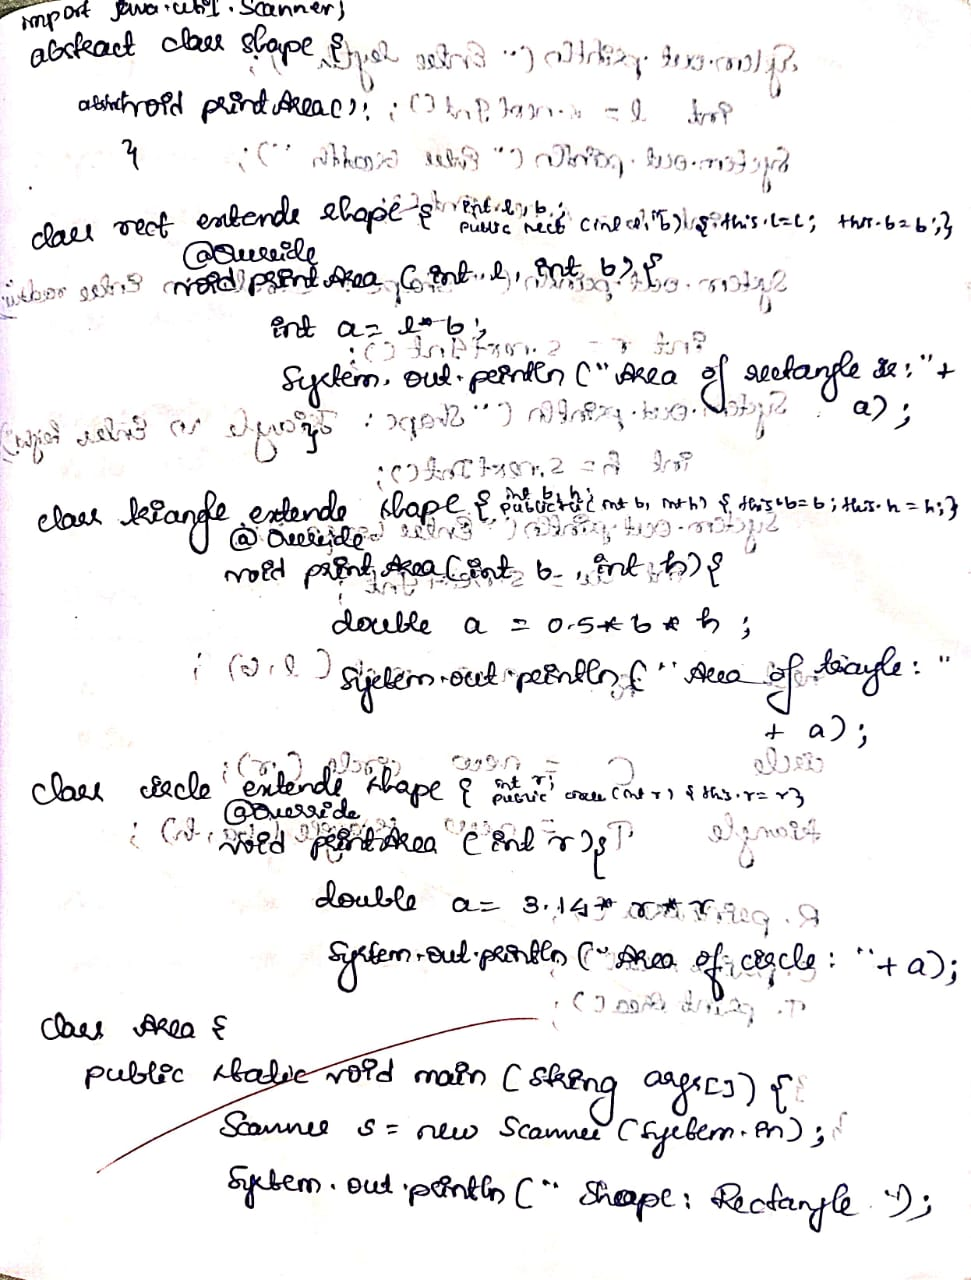 import java.util.Scanner;
abstract class shape {
abstract void print Area();
}
class rect extends shape { int l, b;
public rect (int l, int b) { this.l=l; this.b=b;}
@Override
void print Area (int l, int b) {
int a = l * b;
System.out.println ("Area of rectangle is: " +
a);
}
class triangle extends shape { int b, h;
public tri( int b, int h) { this.b=b; this.h=h;}
@Override
void print Area (int b, int h) {
double a = 0.5 * b * h ;
System.out.println ( " Area of triangle: "
+ a);
class circle extends shape { int r;
public circle (int r) { this.r= r}
@Override
void print Area ( int r ) {
double a= 3.14 * r * r
System.out.println ("Area of circle: " + a);
class Area {
public static void main (String args[]) {
Scanner s = new Scanner (System.in);
System.out.println (" Shape: Rectangle ");